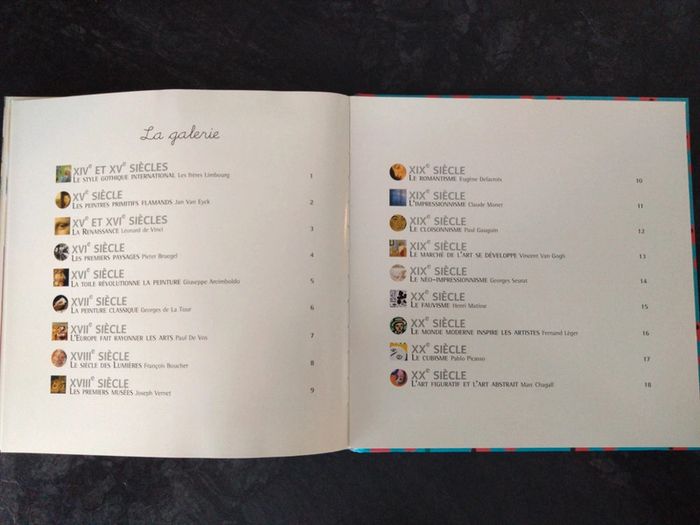 La galerie
XIVe ET XVe SIÈCLES
LE STYLE GOTHIQUE INTERNATIONAL Les frères Limbourg 1
XVe SIÈCLE
LES PEINTRES PRIMITIFS FLAMANDS Jan Van Eyck 2
XVe ET XVIe SIÈCLES
LA RENAISSANCE Léonard de Vinci 3
XVIe SIÈCLE
LES PREMIERS PAYSAGES Pieter Bruegel 4
XVIe SIÈCLE
LA TOILE RÉVOLUTIONNE LA PEINTURE Giuseppe Arcimboldo 5
XVIIe SIÈCLE
LA PEINTURE CLASSIQUE Georges de La Tour 6
XVIIe SIÈCLE
L'EUROPE FAIT RAYONNER LES ARTS Paul De Vos 7
XVIIIe SIÈCLE
LE SIÈCLE DES LUMIÈRES François Boucher 8
XVIIIe SIÈCLE
LES PREMIERS MUSÉES Joseph Vernet 9
XIXe SIÈCLE
LE ROMANTISME Eugène Delacroix 10
XIXe SIÈCLE
L'IMPRESSIONNISME Claude Monet 11
XIXe SIÈCLE
LE CLOISONNISME Paul Gauguin 12
XIXe SIÈCLE
LE MARCHÉ DE L'ART SE DÉVELOPPE Vincent Van Gogh 13
XIXe SIÈCLE
LE NÉO-IMPRESSIONNISME Georges Seurat 14
XXe SIÈCLE
LE FAUVISME Henri Matisse 15
XXe SIÈCLE
LE MONDE MODERNE INSPIRE LES ARTISTES Fernand Léger 16
XXe SIÈCLE
LE CUBISME Pablo Picasso 17
XXe SIÈCLE
L'ART FIGURATIF ET L'ART ABSTRAIT Marc Chagall 18